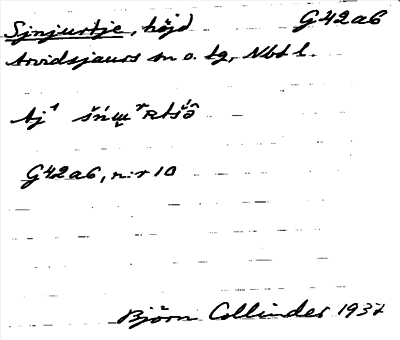 Sjnjurtje, höjd G42a6
Arvidsjaurs sn o. tg, Nbt l.
Aj¹
G42a6, n:r 10
Björn Collinder 1937